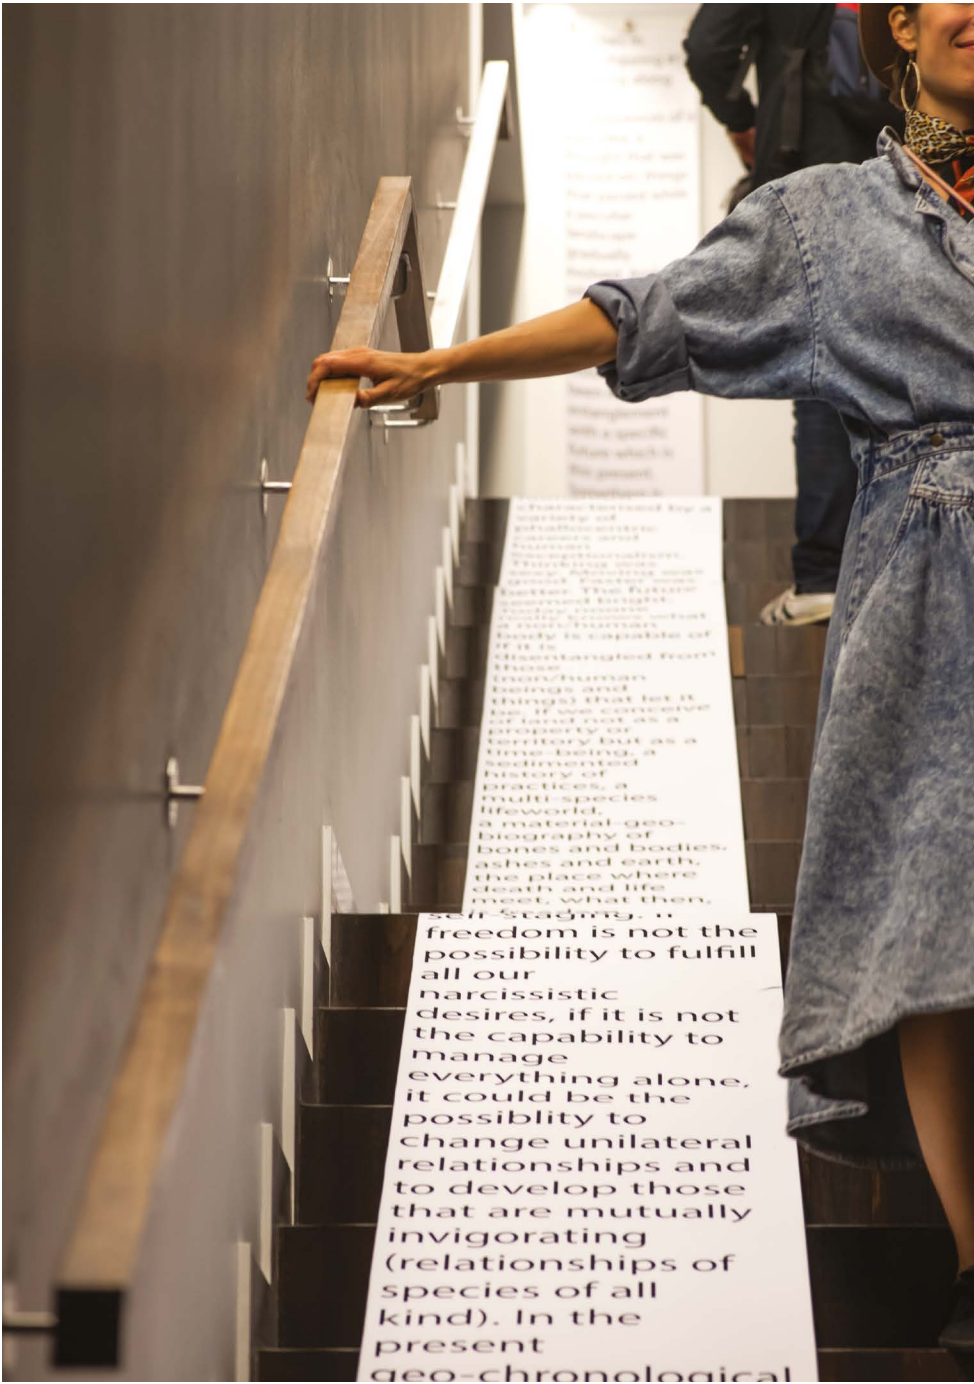 entanglement
with a specific
future which is
this present.
characterised by a
variety of
phallocentric
careers and
human
exceptionalism.
Thinking was
sexy. Moving was
good. Faster was
better. The future
seemed bright.
Today noone
really knows what
a non/human
body is capable of
if it is
disentangled from
those
(non/human
beings and
things) that let it
be. If we conceive
of land not as a
property or
territory but as a
time-being, a
sedimented
history of
practices, a
multi-species
lifeworld,
a material-geo-
biography of
bones and bodies,
ashes and earth,
the place where
death and life
meet, what then,
self-staging. If
freedom is not the
possibility to fulfill
all our
narcissistic
desires, if it is not
the capability to
manage
everything alone,
it could be the
possiblity to
change unilateral
relationships and
to develop those
that are mutually
invigorating
(relationships of
species of all
kind). In the
present
geo-chronological